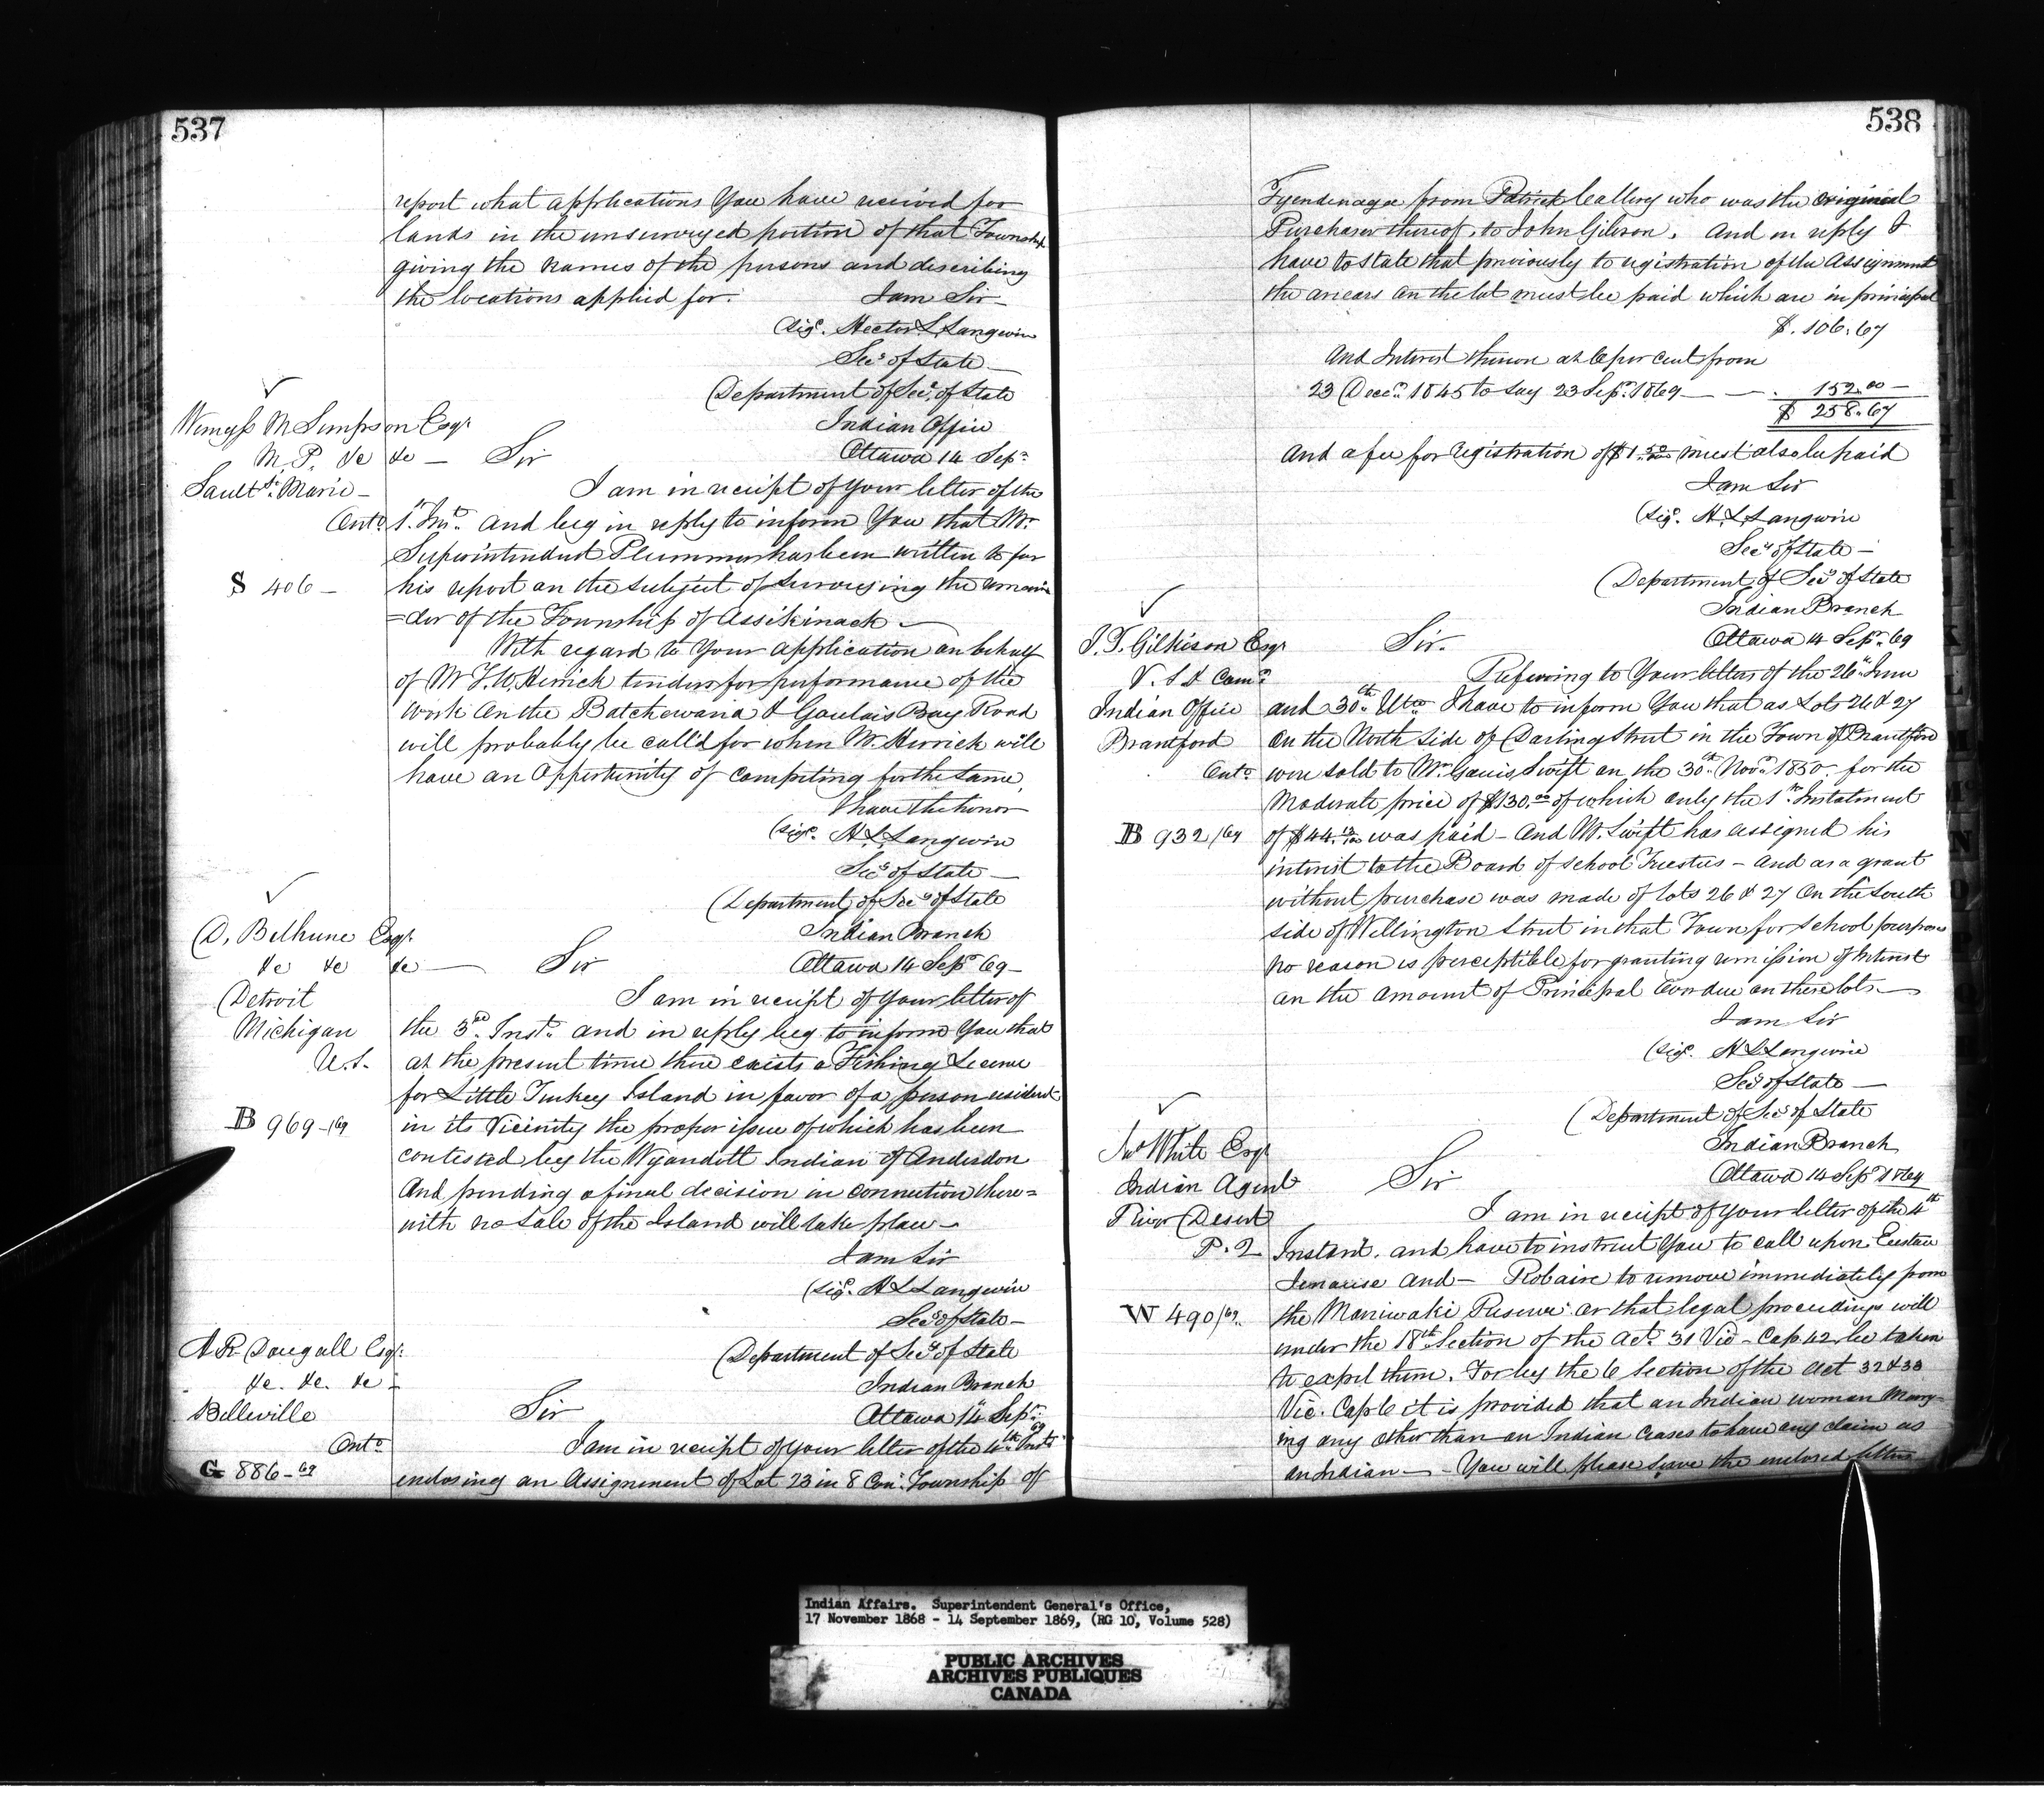 537
report what applications You have received for
lands in the unsurveyed portion of that Township
giving the names of the persons and describing
the locations applied for.
I am Sir
Sigd. Hector L Langevin
Secy of State
Department of Secy of State
Indian Office
Ottawa 14 Sepr
Wemyss M Simpson Esqr
M. P. &c &c —
Sault Ste Marie —
Onto
S 406 —
Sir
I am in receipt of your letter of the
1st Inst. and beg in reply to inform You that Mr
Superintendent Plummer has been written to for
his report on the subject of surveying the remain
=der of the Township of Assikinack —
With regard to Your application on behalf
of Mr F. W. Herrick tenders for performance of the
work on the Batchewana & Goulais Bay Road
will probably be call'd for when Mr. Herrick will
have an Opportunity of competing for the same,
I have the honor
(Sigd. H. L Langevin
Secy of State —
Department of Secy of State
Indian Branch
Ottawa 14 Sepr 69 —
D. Bethune Esqr.
&c &c &c —
Detroit
Michigan
U. S.
B 969 - /69
Sir
I am in receipt of your letter of
the 3rd Inst. and in reply beg to inform You that
at the present time there exists a Fishing License
for Little Turkey Island in favor of a person resident
in its Vicinity the proper issue of which has been
contested by the Wyandott Indian of Anderdon
And pending a final decision in connection there=
with no Sale of the Island will take place —
I am Sir
(Sigd. H L Langevin
Secy of State —
Department of Secy of State
Indian Branch
Ottawa 14 Sepr. 69
A R Dougall Esqr.
&c. &c. &c —
Belleville
Onto
G 886 - 69
Sir
I am in receipt of your letter of the 4th Inst
enclosing an Assignment of Lot 23 in 8 Con. Township of
538
Tyendinaga from Patrick Callery who was the original
Purchaser thereof, to John Gibson. And in reply I
have to state that previously to registration of the Assignment
the arrears on the lot must be paid which are in principal
$. 106.67
And Interest thereon at 6 per cent from
23 Decr. 1845 to say 23 Sepr. 1869 — — . 152.00 —
$ 258.67
And a fee for registration of $1.50 must also be paid
I am Sir
(Sigd. H. L Langevin
Secy of State —
Department of Secy of State
Indian Branch
Ottawa 14 Sepr. 69
J. T. Gilkison Esqr
V. S & Comr
Indian Office
Brantford
Onto
B 932 /69
Sir.
Referring to Your letters of the 26th June
and 30th Ulto I have to inform You that as Lots 26 & 27
on the North Side of Darling Street in the Town of Brantford
were sold to Mr. Swift on the 30th Novr 1850. for the
Moderate price of $130.00 of which only the 1st Instalment
of $44. was paid — And Mr. Swift has assigned his
interest to the Board of School Trustees — and as a grant
without purchase was made of lots 26 & 27 On the South
side of Wellington Street in that Town for school purposes
no reason is perceptible for granting remission of Interest
on the amount of Principal Overdue on these lots —
I am Sir
(Sigd. H L Langevin
Secy of State —
Department of Secy of State
Indian Branch
Ottawa 14 Sepr 1869
Jno White Esqr
Indian Agent
River Desert
P. Q
W 490/69.
Sir
I am in receipt of your letter of the 4th
Instant. and have to instruct You to call upon
and — Robaire to remove immediately from
the Maniwaki Reserve or that legal proceedings will
under the 18th Section of the Act. 31 Vic — Cap 42 be taken
to expel them. For by the 6 Section of the Act 32 & 33
Vic. Cap 6 it is provided that an Indian woman Marry-
ing any other than an Indian ceases to have any claim as
an Indian — You will please serve the enclosed letters
Indian Affairs. Superintendent General's Office,
17 November 1868 - 14 September 1869, (RG 10, Volume 528)
PUBLIC ARCHIVES
ARCHIVES PUBLIQUES
CANADA